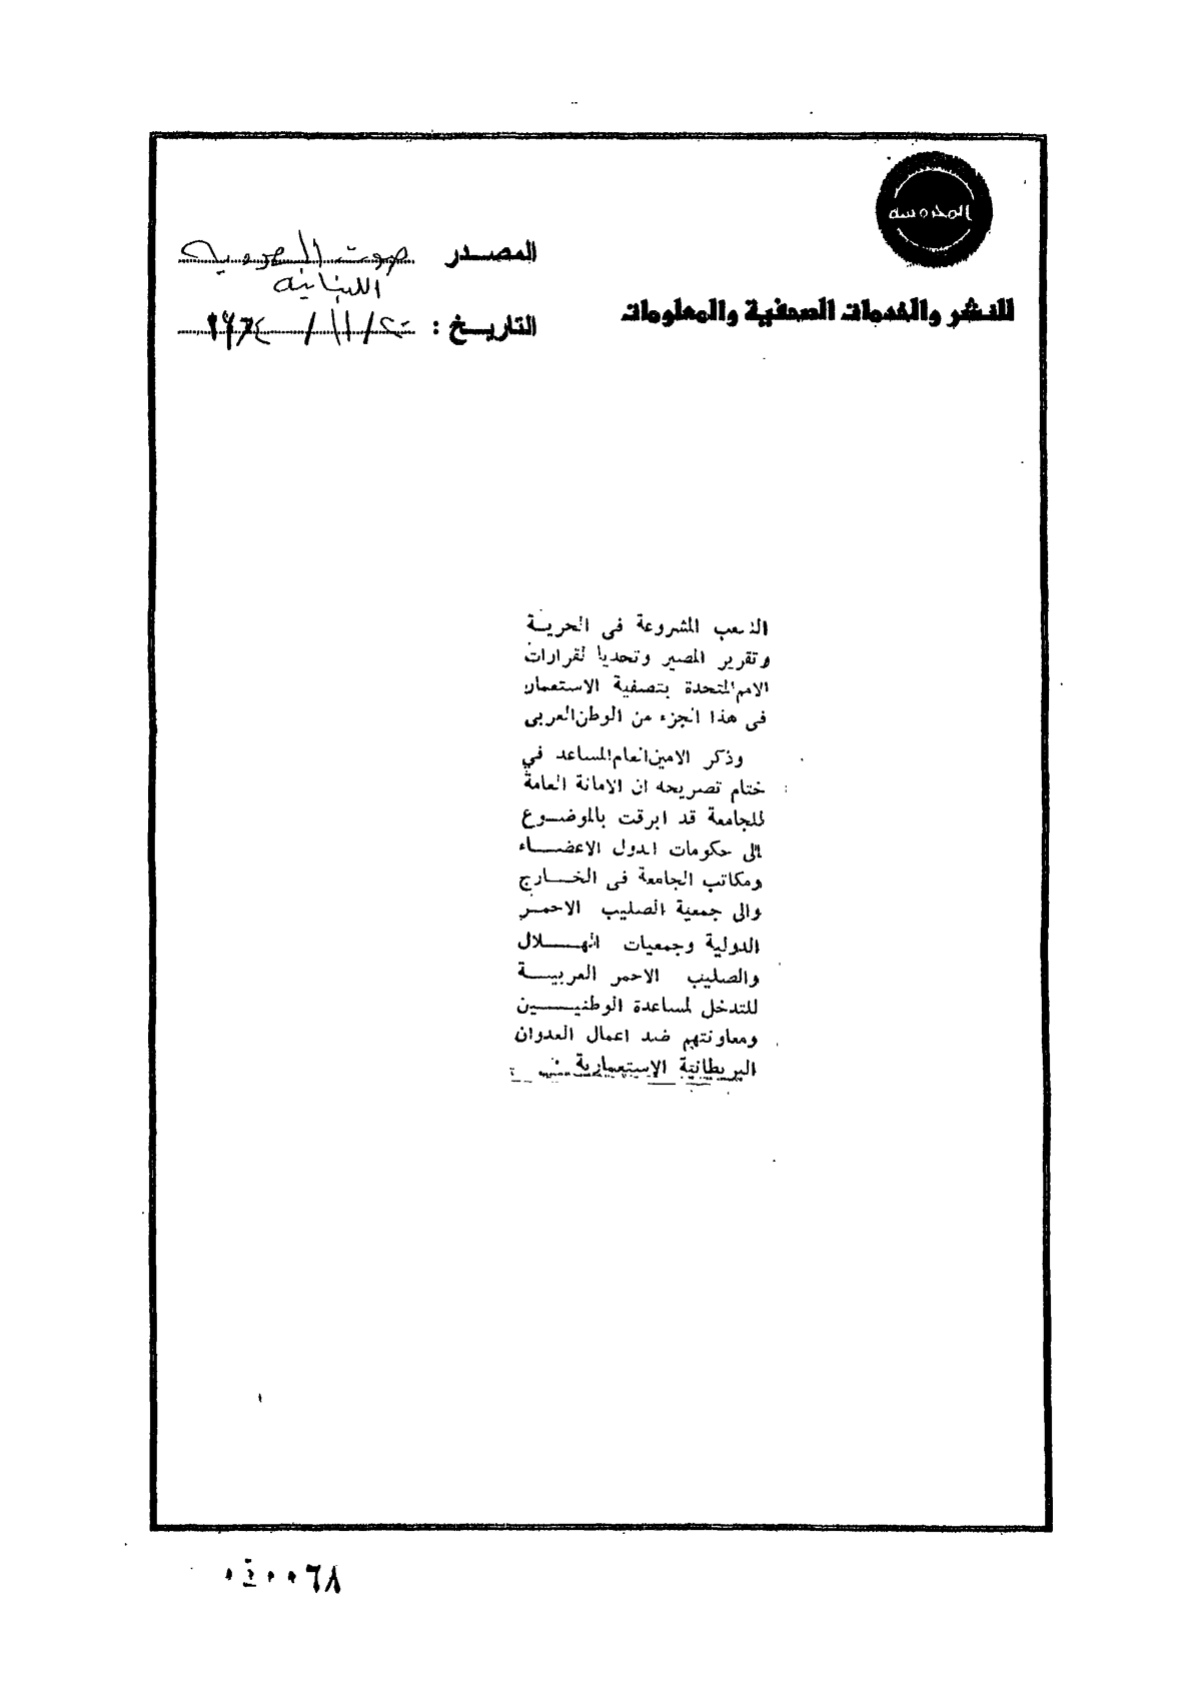 المحروسة
للنشر والخدمات الصحفية والمعلومات
المصدر صوت العروبة
اللبنانية
التاريخ : ٢٠ / ١١ / ١٩٦٤
الشعب المشروعة فى الحريــة
وتقرير المصير وتحديا لقرارات
الامم المتحدة بتصفية الاستعمار
فى هذا الجزء من الوطن العربى
وذكر الامين العام المساعد في
ختام تصريحه ان الامانة العامة
للجامعة قد ابرقت بالموضــوع
الى حكومات الدول الاعضــاء
ومكاتب الجامعة فى الخــارج
والى جمعية الصليب الاحمــر
الدولية وجمعيات الهــلال
والصليب الاحمر العربيــة
للتدخل لمساعدة الوطنيــين
ومعاونتهم ضد اعمال العدوان
البريطانية الاستعمارية